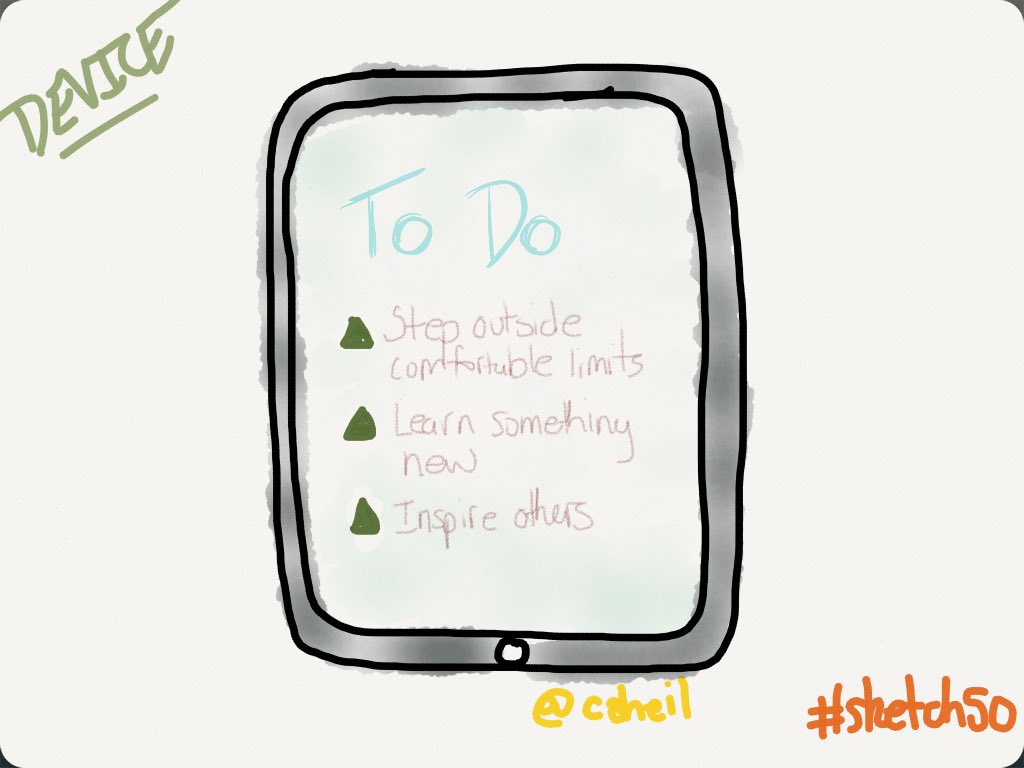 DEVICE
To Do
Step outside
comfortable limits
Learn something
new
Inspire others
@csheil
#sketch50